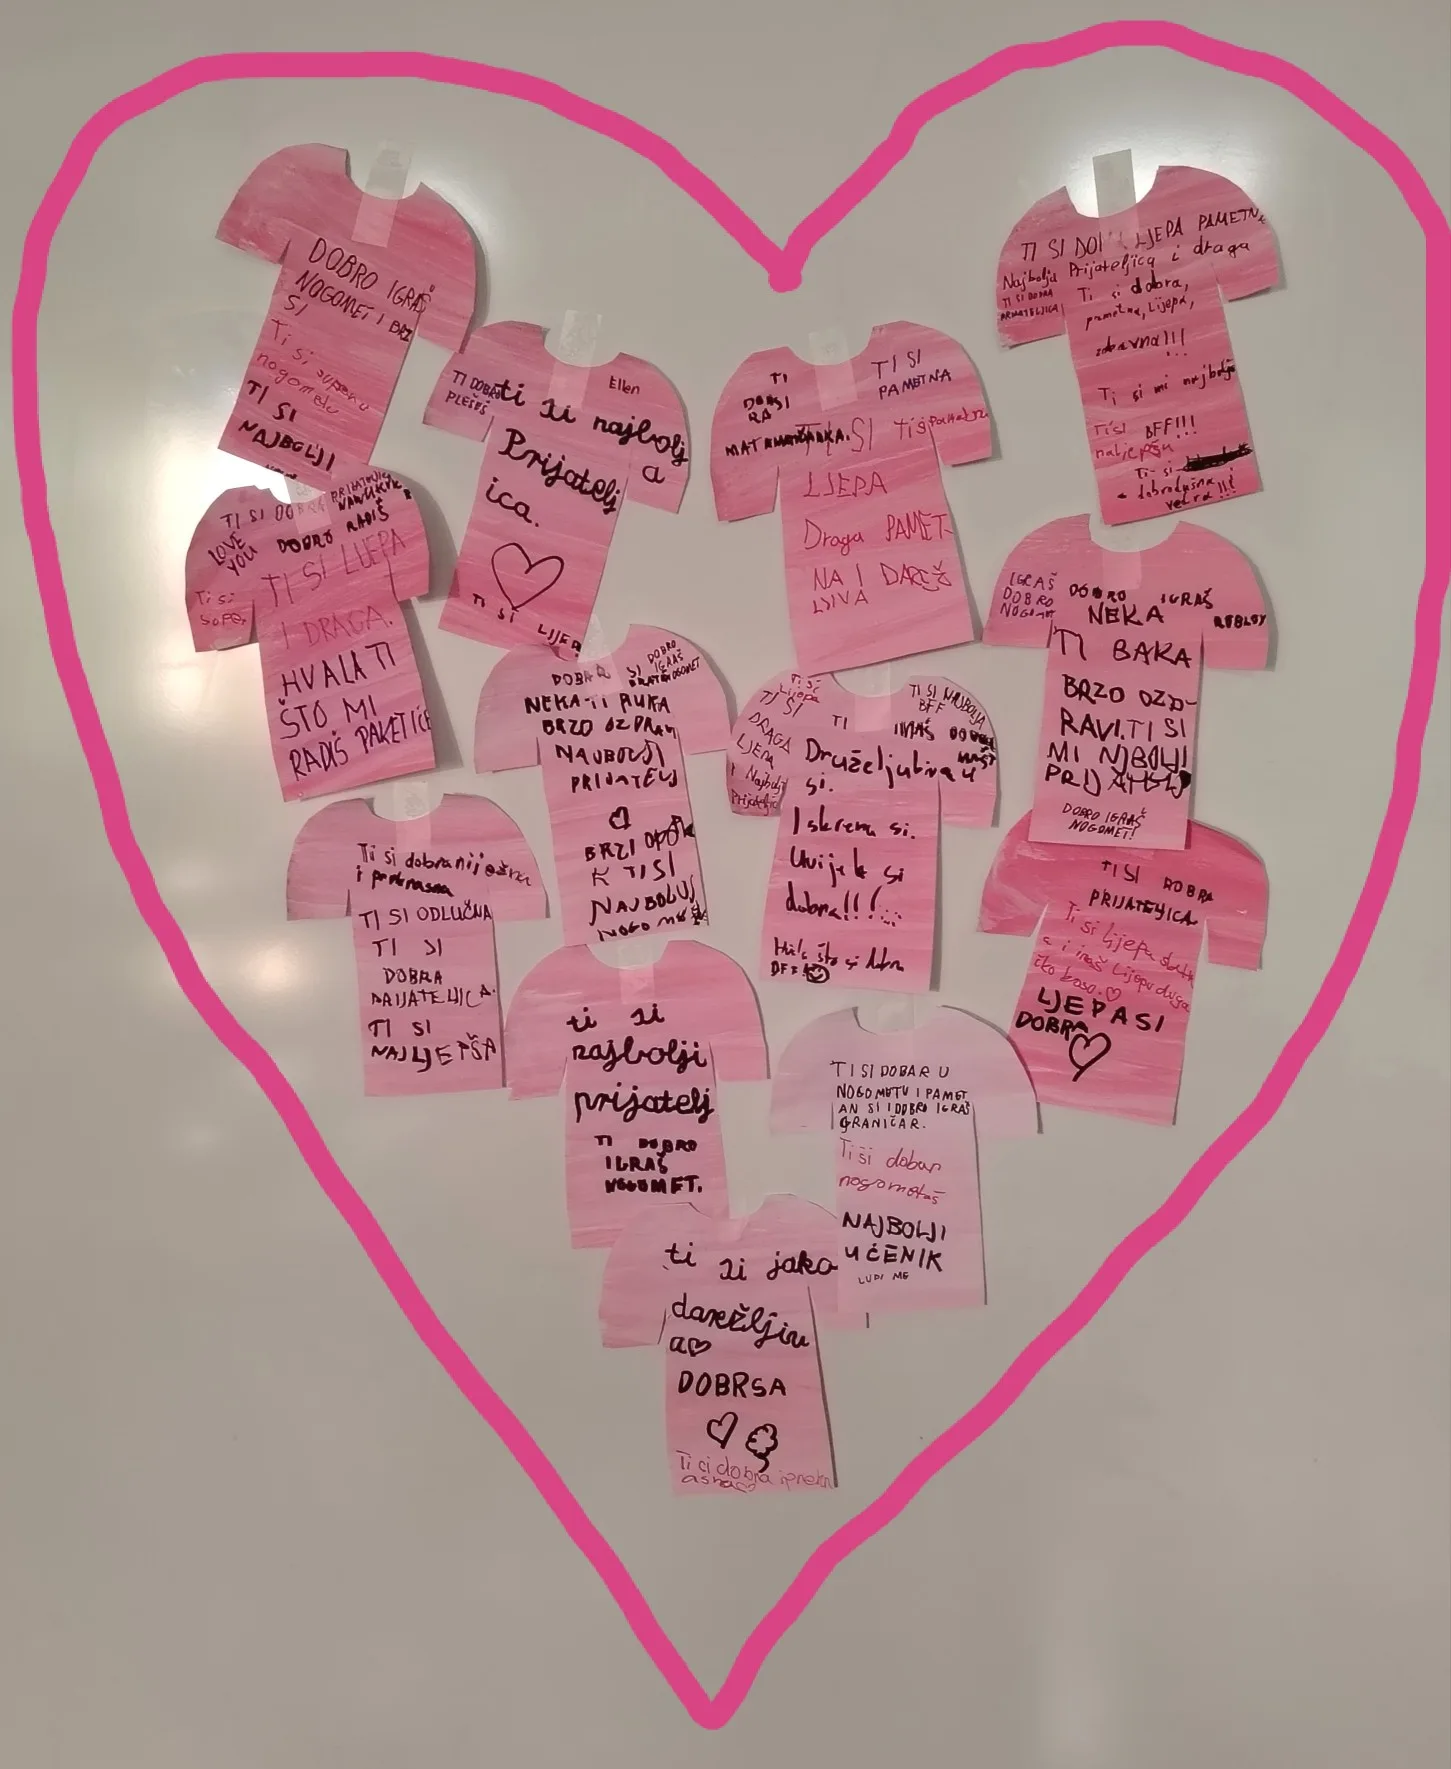 DOBRO IGRAŠ
NOGOMET I BRZ
SI
Ti si super u
nogometu
TI SI
NAJBOLJI
TI DOBRO
PLEŠEŠ
Ellen
ti si najbolj
a
Prijatelj
ica.
TI SI LIJEPA
TI
DOBRA SI
MATEMATIČARKA.
TI SI
PAMETNA
TI SI
Ti si pametna
LJEPA
Draga PAMET
NA I DAREŽ
LJIVA
TI SI DOBRA LJEPA PAMETNA
Prijateljica i draga
Najbolja
TI SI DOBRA
PRIJATELJICA
Ti si dobra,
pametna, Lijepa,
zabavna!!!
Ti si mi najbolja
BFF!!!
Ti si
najljepša
Ti si
dobrodušna
vedra!!!
TI SI DOBRA PRIJATELJICA
LOVE
YOU
DOBRO RADIŠ
Ti si
super
TI SI LIJEPA
I DRAGA.
HVALA TI
ŠTO MI
RADIŠ PAKETIĆE
DOBAR SI
DOBRO
IGRAŠ
NOGOMET
NEKA TI RUKA
BRZO OZDRAVI
NAJBOLJI
PRIJATELJ
BRZI OPORAVA
K TI SI
NAJBOLJI
NOGOMETAŠ
Ti si
Lijepa
TI SI
DRAGA
LJEPA
I Najbolja
Prijateljica
TI SI NAJBOLJA
BFF
TI IMAŠ DOBRU
MAŠT
Druželjubiva
si.
Iskrena si.
Uvijek si
dobra!!!
Hvala što si dobra
BFF!
IGRAŠ
DOBRO
NOGOMET
DOBRO IGRAŠ
ROBLOX
NEKA
TI BAKA
BRZO OZD-
RAVI. TI SI
MI NJBOLJI
PRIJATELJ
DOBRO IGRAŠ
NOGOMET!
Ti si dobra nježna
i prekrasna
TI SI ODLUČNA
TI SI
DOBRA
PRIJATELJICA.
TI SI
NAJLJEPŠA
TI SI DOBRA
PRIJATELJICA
Ti si lijepa slatk
a i imaš lijepu duga
čko kosu.
LJEPA SI
DOBRA
ti si
najbolji
prijatelj
TI DOBRO
IGRAŠ
NOGOMET.
TI SI DOBAR U
NOGOMETU I PAMET
AN SI I DOBRO IGRAŠ
GRANIČAR.
Ti si dobar
nogometaš
NAJBOLJI
UČENIK
ti si jako
darežljiv
a
DOBRSA
Ti ci dobra i prekr
asna